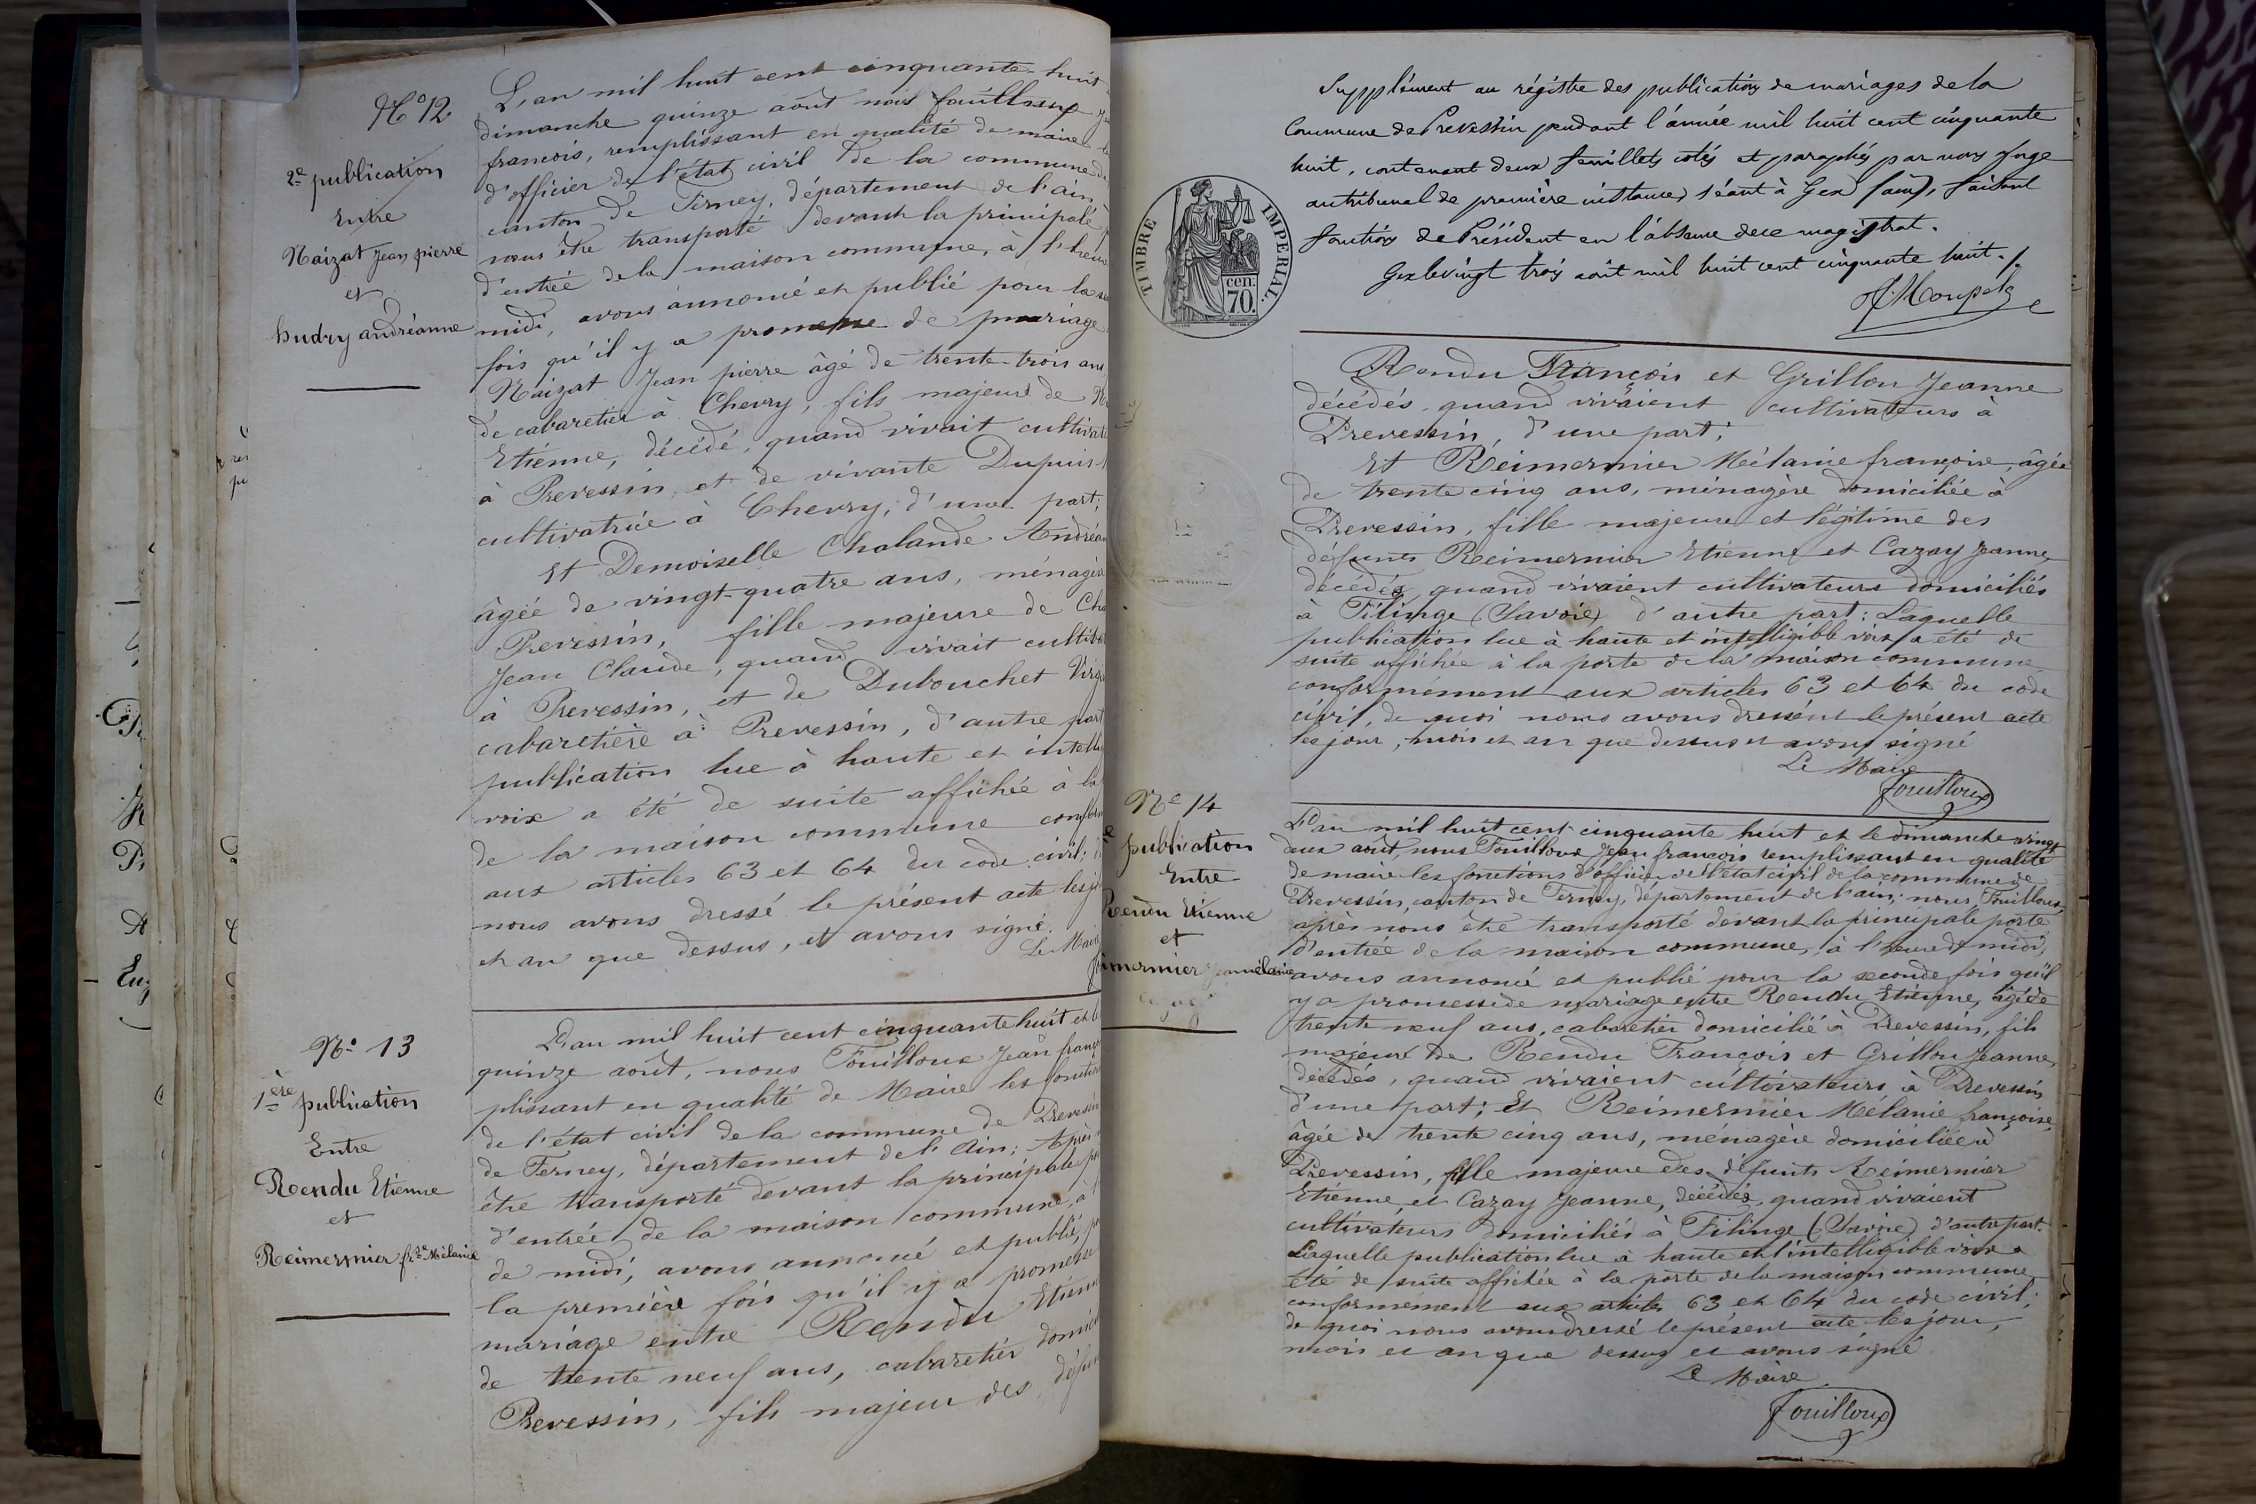 N° 12
2e publication
Entre
Naizat Jean pierre
et
hudry andréanne
L'an mil huit cent cinquante-huit
dimanche quinze août nous fouilloux
francois, remplissant en qualité de maire
d'officier de l'état civil de la commune
canton de Ferney, département de l'ain,
nous être transporté devant la principale
d'entrée de la maison commune, à l'heure
midi, avons annoncé et publié pour la
fois qu'il y a promesse de mariage
Naizat Jean pierre âgé de trente-trois ans
de cabaretier à Chevry, fils majeur de
Etienne, décédé, quand vivait
à Prevessin, et de vivante Dupuis
cultivatrice à Chevry, d'une part;
Et Demoiselle Chalande
âgée de vingt-quatre ans,
Prevessin, fille majeure de
Jean Claude, quand vivait
à Prevessin, et de Dubouchet
cabaretière à Prevessin, d'autre part
publication lue à haute et
voix a été de suite affichée à la
de la maison commune
aux articles 63 et 64 du code civil;
nous avons dressé le présent acte
et an que dessus, et avons signé.
Le Maire
N° 13
1ère publication
Entre
Rendu Etienne
et
Reimermier fse Mélanie
L'an mil huit cent cinquante huit et le
quinze août, nous Fouilloux Jean
plissant en qualité de Maire les
de l'état civil de la commune de Prevessin
de Ferney, département de l'Ain; Après
être transporté devant la principale
d'entrée de la maison commune, à
de midi, avons annoncé et publié,
la première fois qu'il y a promesse
mariage entre Rendu Etienne
de trente neuf ans, cabaretier
Prevessin, fils majeur des
Suppplément au régistre des publications de mariages de la
Commune de Prevessin pendant l'année mil huit cent cinquante
huit, contenant deux feuillets cotés et paraphés par nous Juge
au tribunal de première instance séant à Gex (ain), faisant
fonctions de Président en l'absence de ce magistrat.
Gex le vingt trois août mil huit cent cinquante huit./.
TIMBRE IMPERIAL
cen.
70.
Rendu François et Grillon Jeanne
décédés quand vivaient cultivateurs à
Prevessin, d'une part;
Et Reimermier Mélanie françoise, âgée
de trente cinq ans, ménagère domiciliée à
Prevessin, fille majeure et légitime des
défunts Reimermier Etienne et Cazay Jeanne
décédés, quand vivaient cultivateurs domiciliés
à Filinge (Savoie) d'autre part: Laquelle
publication lue à haute et intelligible voix a été de
suite affichée à la porte de la maison commune
conformément aux articles 63 et 64 du code
civil, de quoi nous avons dressént le présent acte
les jour, mois et an que dessus et avons signé
Le Maire
fouilloux
N° 14
publication
Entre
Rendu Etienne
et
L'an mil huit cent cinquante huit et le dimanche vingt
deux août, nous Fouilloux Jean françois remplissant en qualité
de maire les fonctions d'officier de l'état civil de la commune de
Prevessin, canton de Ferney, département de l'ain; nous Fouilloux,
après nous être transporté devant la principale porte
d'entrée de la maison commune, à l'heure de midi,
avons annoncé et publié pour la seconde fois qu'il
y a promesse de mariage entre Rendu Etienne, âgé de
trente neuf ans, cabaretier domicilié à Prevessin, fils
majeur de Rendu François et Grillon Jeanne,
décédés, quand vivaient cultivateurs à Prevessin
d'une part; Et Reimermier Mélanie françoise,
âgée de trente cinq ans, ménagère domiciliée à
Prevessin, fille majeure des défunts Reimermier
Etienne et Cazay Jeanne, décédés, quand vivaient
cultivateurs domiciliés à Filinge (Savoie) d'autre part.
Laquelle publication lue à haute et intelligible voix a
été de suite affichée à la porte de la maison commune
conformément aux articles 63 et 64 du code civil;
de quoi nous avons dressé le présent acte les jour,
mois et an que dessus et avons signé
Le Maire
fouilloux